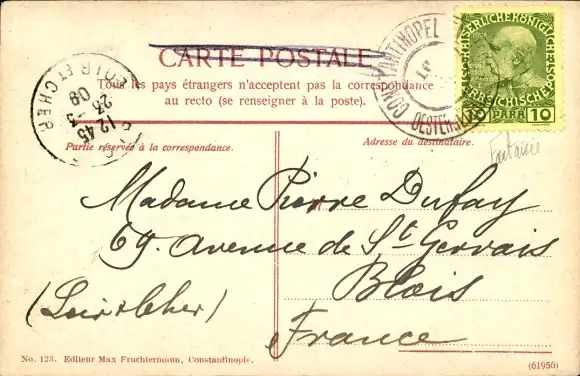 CARTE POSTALE
Tous les pays étrangers n'acceptent pas la correspondance
au recto (se renseigner à la poste).
Partie réservée à la correspondance.
Adresse du destinataire.
LOIR ET CHER
12 45
23 - 3
09
CONSTANTINOPEL
KAISERLICHE KÖNIGLICHE
ÖSTERREICHISCHE
10 PARA 10
Fantaisie
Madame Pierre Dufay
69. Avenue de St Gervais
Blois
(Loir & Cher)
France
No. 123. Editeur Max Fruchtermann, Constantinople.
(61956)